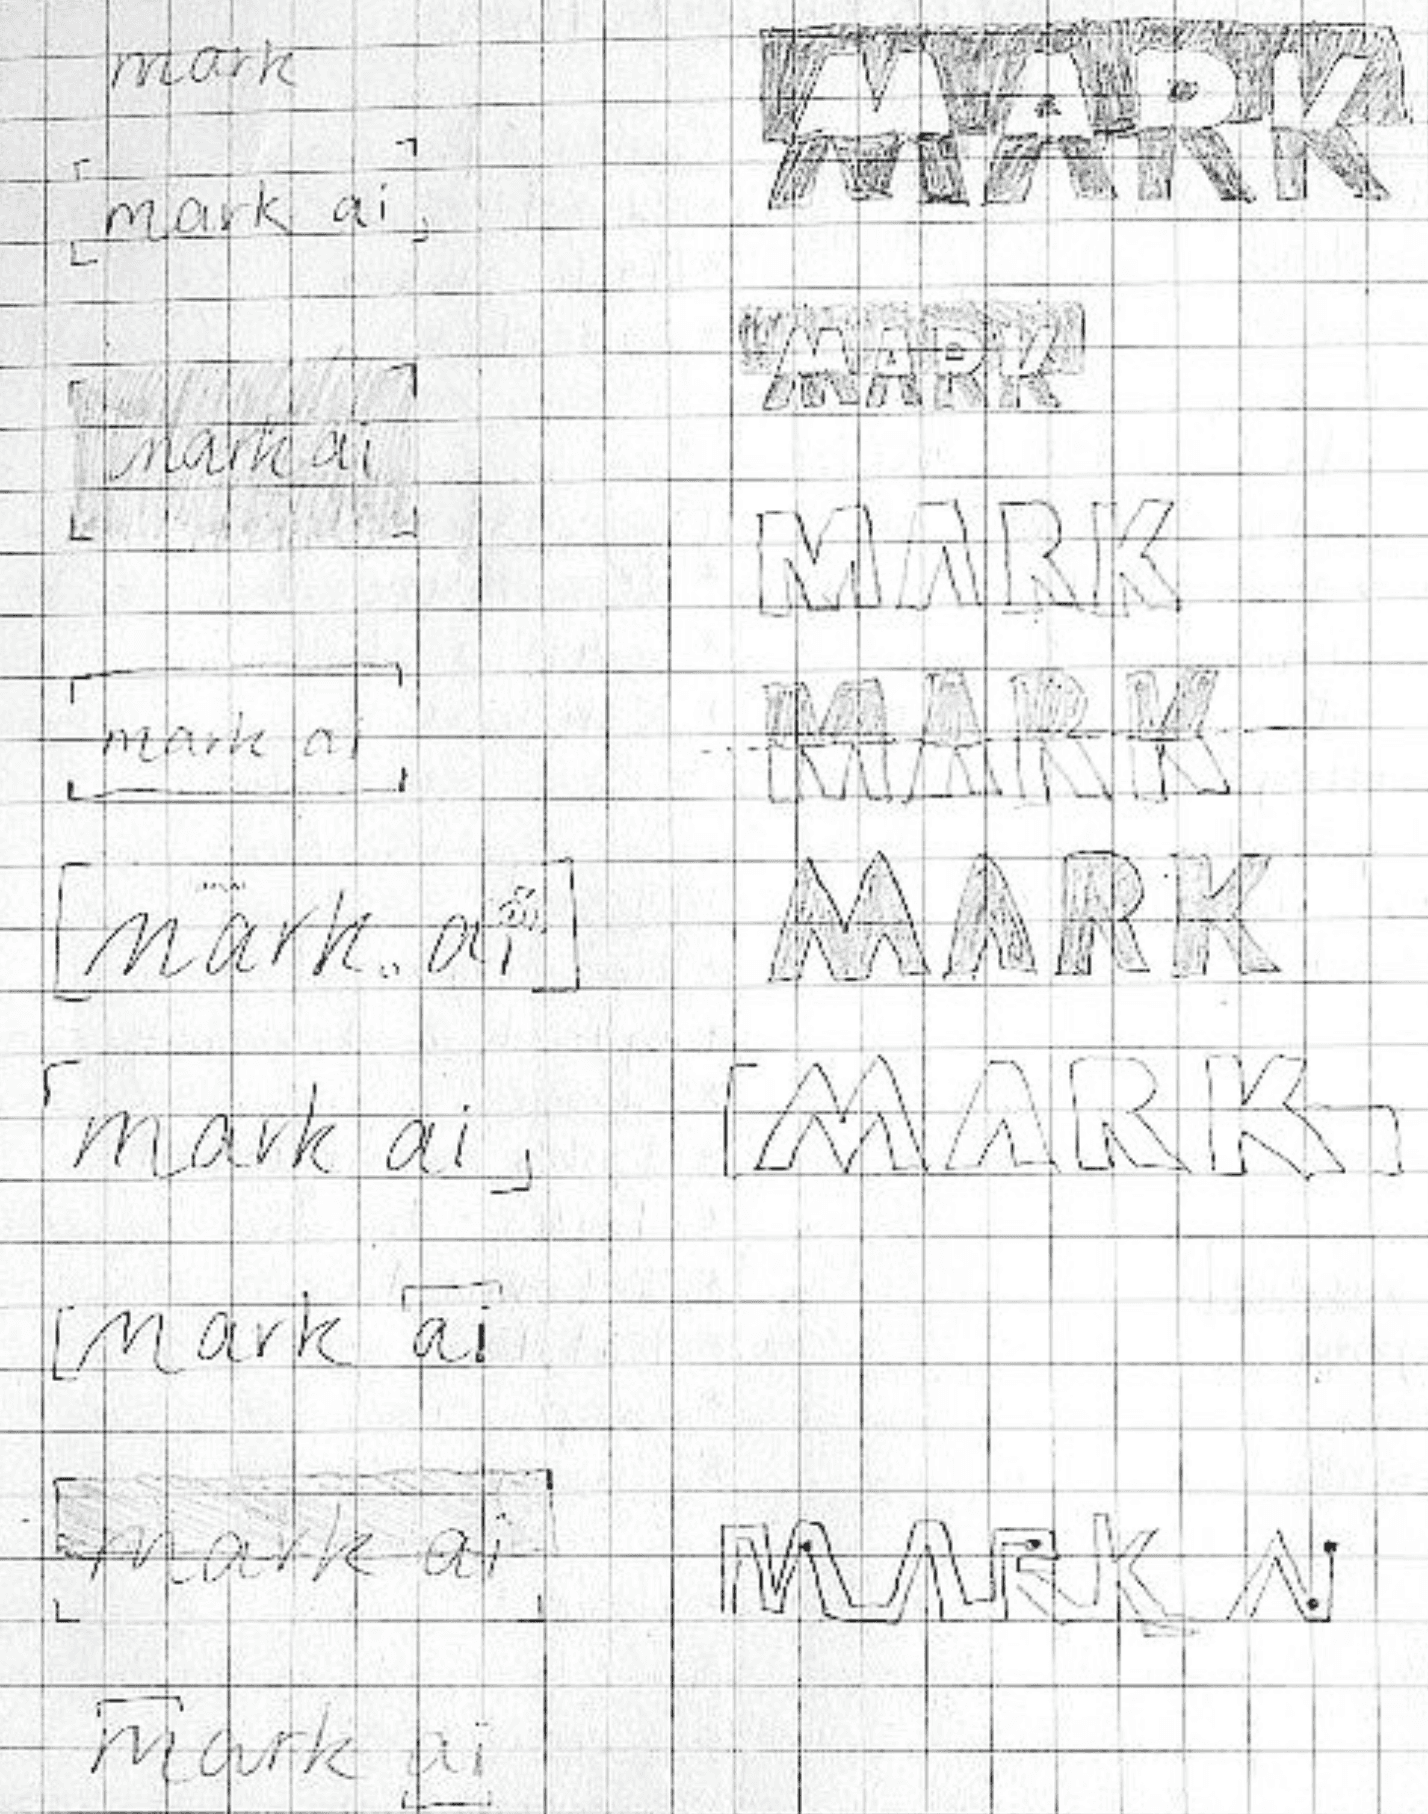 mark
mark ai
mark ai
mark ai
mark. ai
mark ai
mark ai
mark ai
mark ai
MARK
MARK
MARK
MARK
MARK
MARK
MARK AI